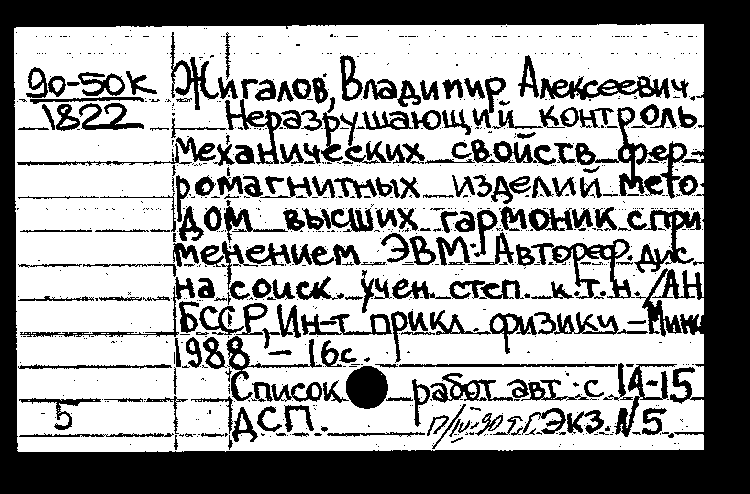 90-50К Жигалов, Владимир Алексеевич
1822 Неразрушающий контроль
механических свойств фер-
ромагнитных изделий мето-
дом высших гармоник с при
менением ЭВМ: Автореф. дис.
на соиск. учен. степ. к.т.н. /АН
БССР, Ин-т прикл. физики – Минс
1988. – 16с.
Список работ авт.: с 14-15
5 ДСП. Экз. №5.